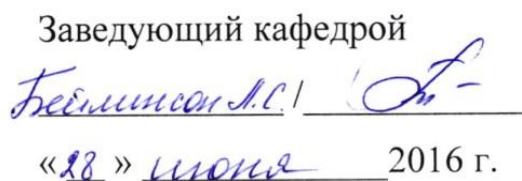 Заведующий кафедрой
Бейлинсон Л.С. /
«28» июня 2016 г.